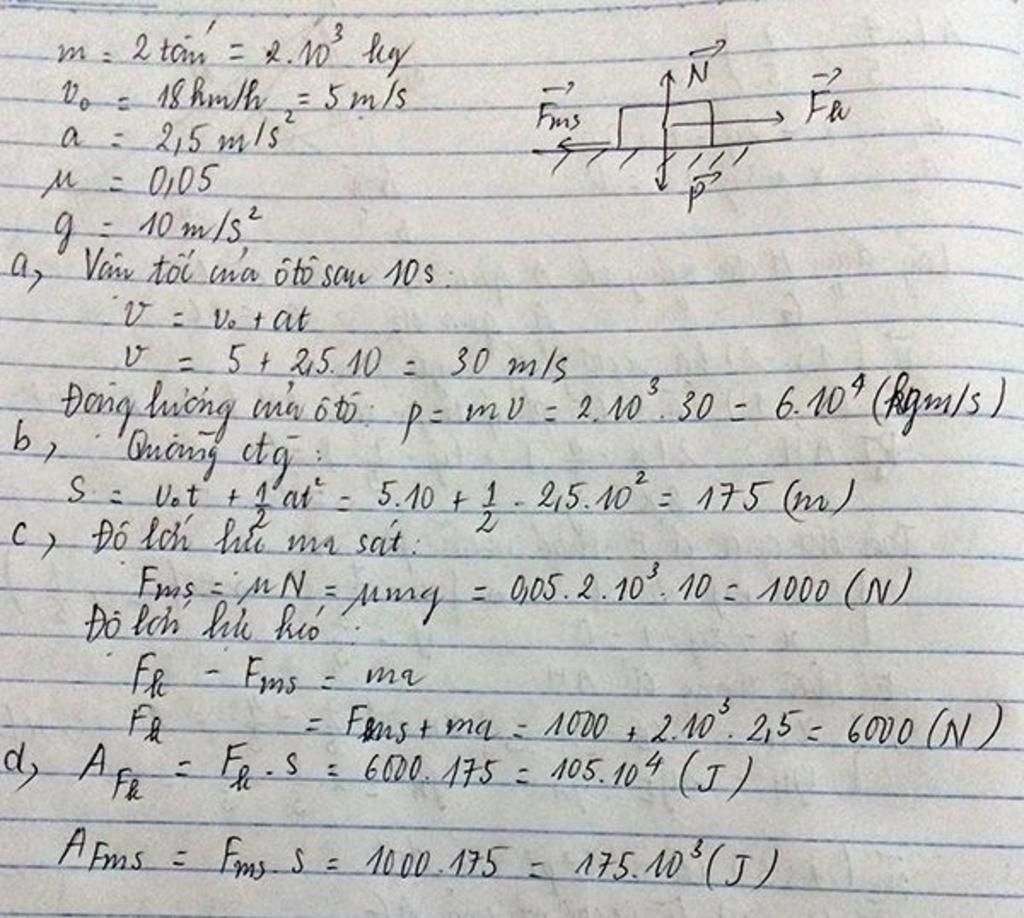 m = 2 tấn = 2.10³ kg
v₀ = 18km/h = 5 m/s
a = 2,5 m/s²
μ = 0,05
g = 10 m/s²
N
Fms
Fk
P
a, Vận tốc của ôtô sau 10s:
v = v₀ + at
v = 5 + 2,5.10 = 30 m/s
Động lượng của ôtô: p = mv = 2.10³.30 = 6.10⁴ (kgm/s)
b, Quãng đtg:
S = v₀t + 1/2 at² = 5.10 + 1/2 . 2,5.10² = 175 (m)
c, Độ lớn lực ma sát:
Fms = μN = μmg = 0,05.2.10³.10 = 1000 (N)
Độ lớn lực kéo:
Fk - Fms = ma
Fk = Fms + ma = 1000 + 2.10³.2,5 = 6000 (N)
d, A Fk = Fk.s = 6000.175 = 105.10⁴ (J)
A Fms = Fms.s = 1000.175 = 175.10³ (J)